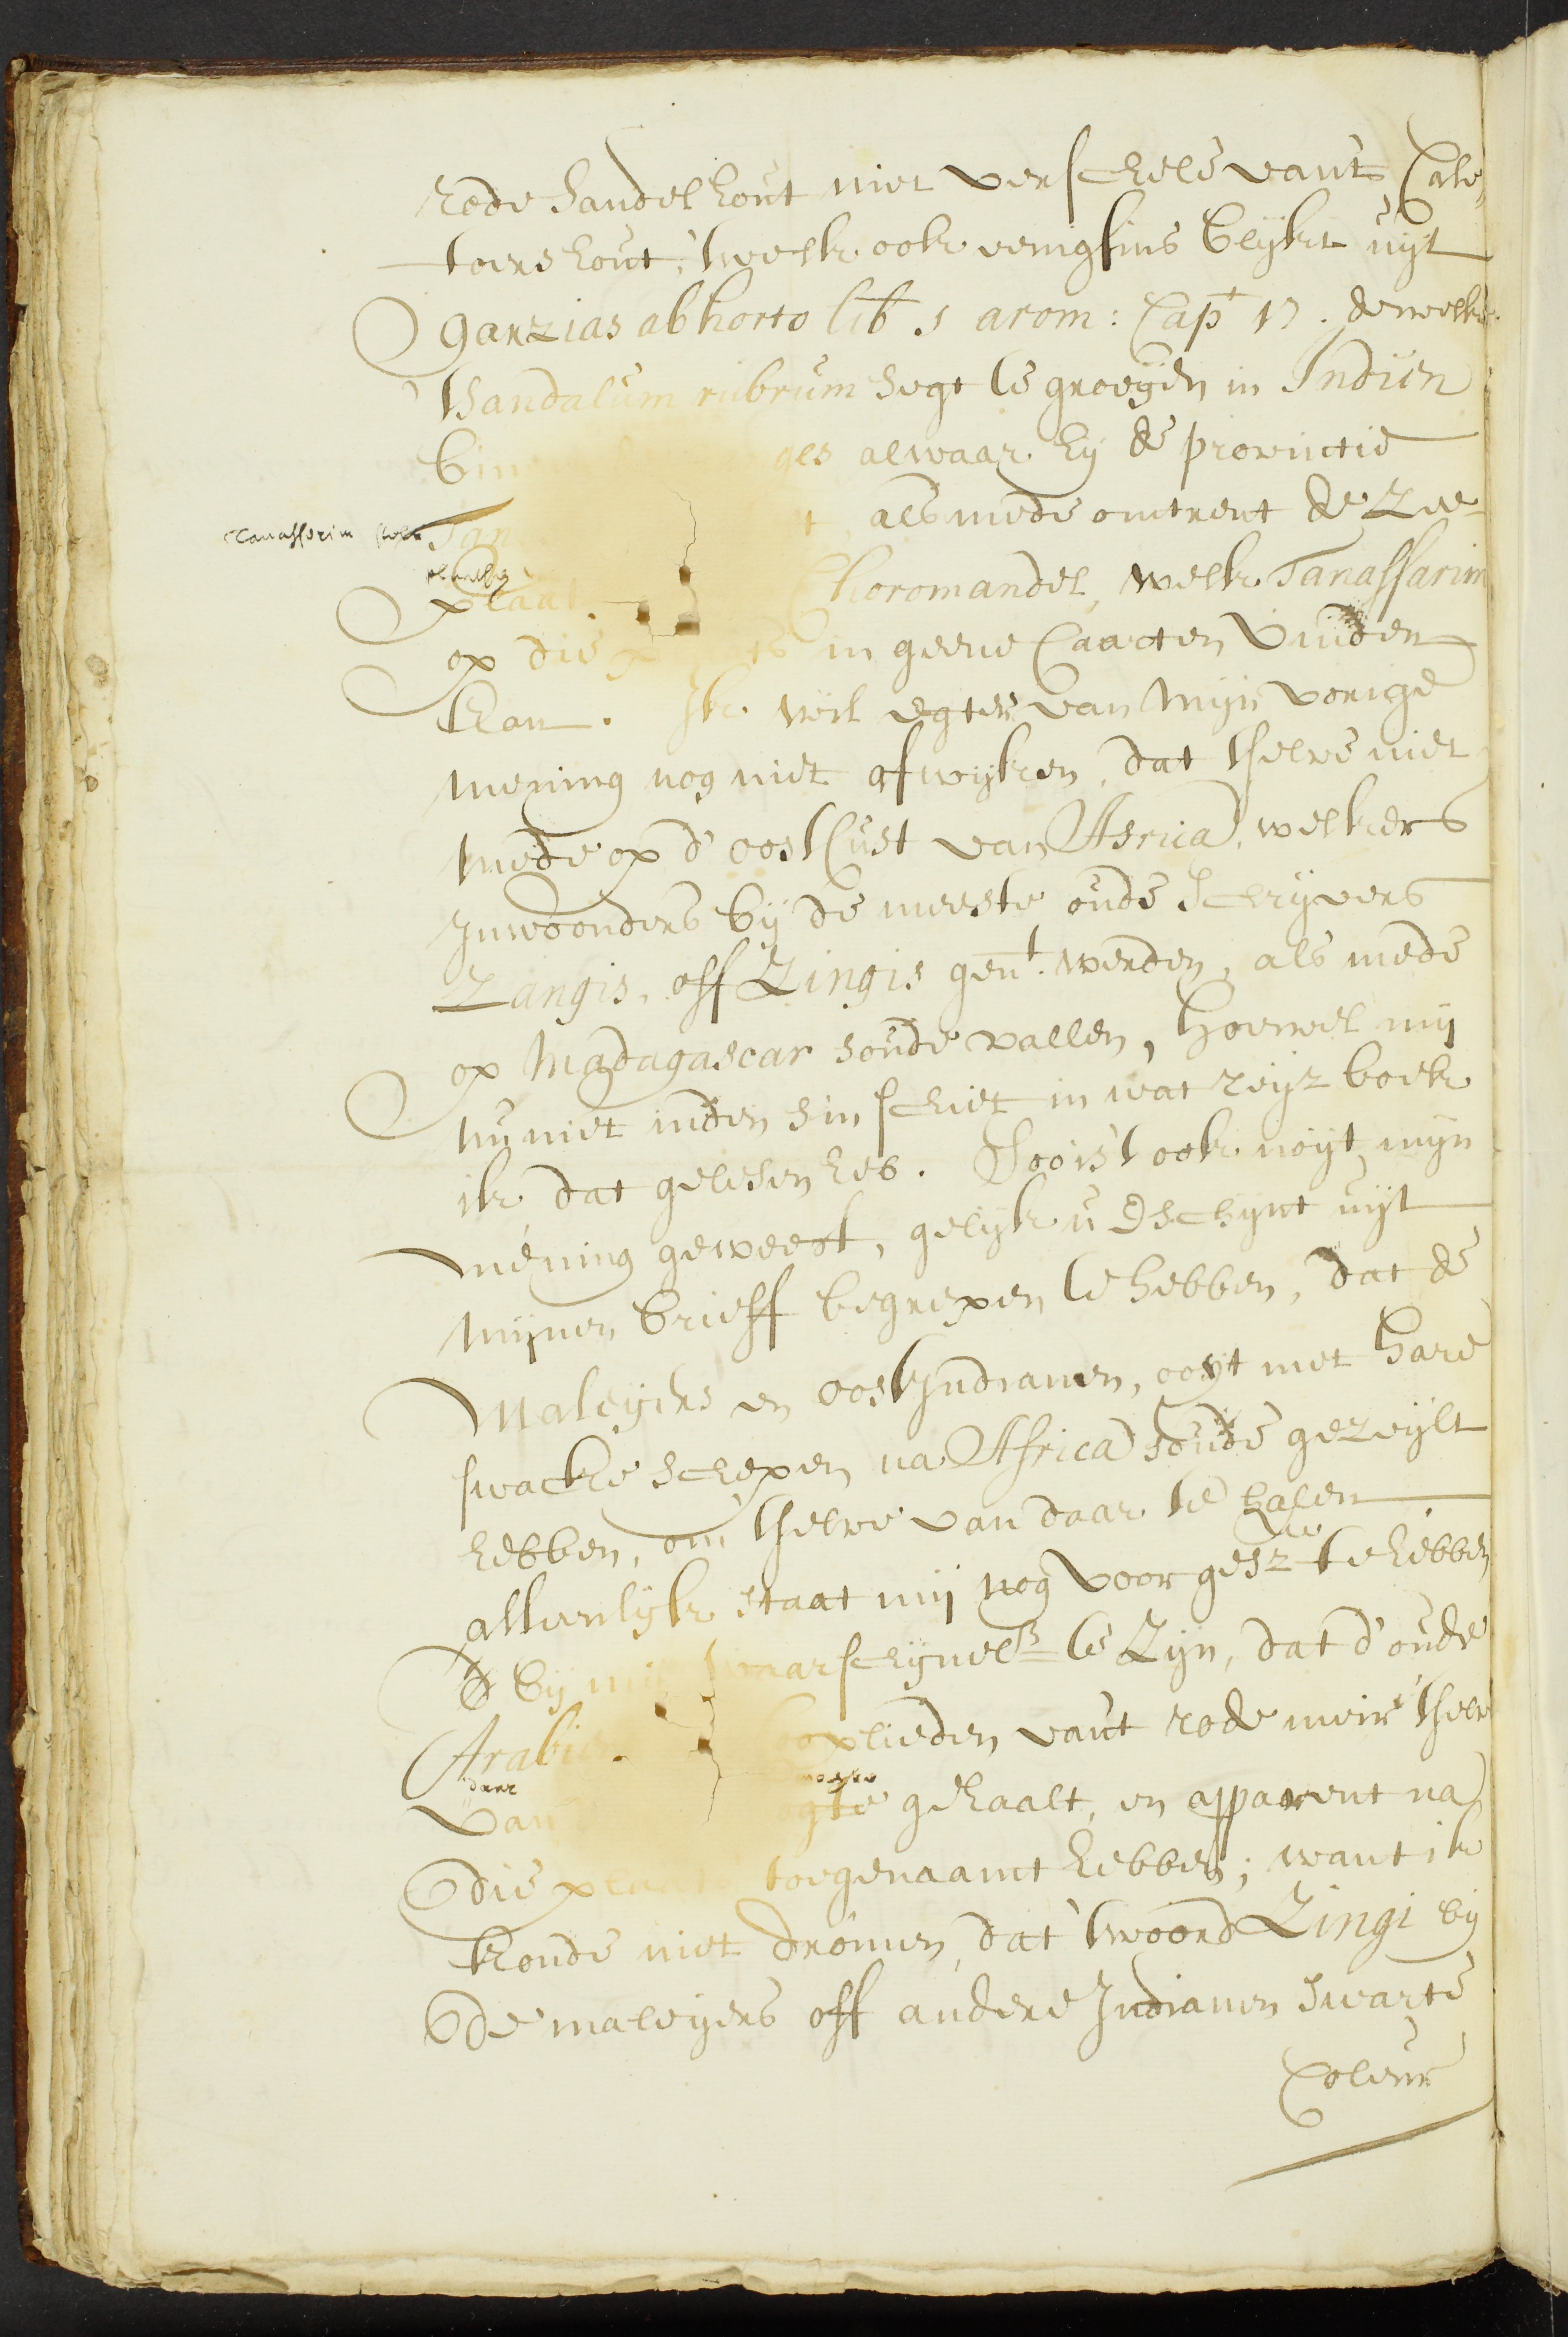 rode sandelhout niet verschele van't Cale,
toers hout, 'twelk ook enigsins blijkt uijt
Garzias ab horto lib. 1 arom: Cap.t 17. dewelke
't Sandalum rubrum segt te groeijen in Indiën
bin ges alwaar hij de provinctie
Tanasserim stelt
Tan t, als mede omtrent de Zee-
plaat Choromandel, welk Tanassarim
op die in gene Caarten vinden
kan. Ik wil egter van mijn vorige
mening nog niet afwijken, dat 'tselve niet
mede op d' oostCust van Africa, welkers
Inwoonders bij de meeste oude schrijvers
Zangis, off Zingis gen.t werden, als mede
op Madagascar soude vallen, hoewel mij
nu niet inden sin schiet in wat reijzboek
ik dat gelesen heb. Soo is't ook noijt mijn
mening geweest, gelijk u E schijnt uijt
mijnen brieff begrepen te hebben, dat de
Maleijers en oostIndianen, ooijt met hare
swacke schepen na Africa soude gezeijlt
hebben, om 'tselve van daar te halen
allenlijk staat mij nog voor gesz te hebben
bij mij waarschijnel: te Zijn, dat d'oude
Arabier oplieden van't rode meir 'tselve
daar
van gte gehaalt, en apparent na
die plaats toegenaamt hebben; want ik
konde niet dromen, dat 't woord Zingi bij
de maleijers off andere Indianen swarte
Coleur